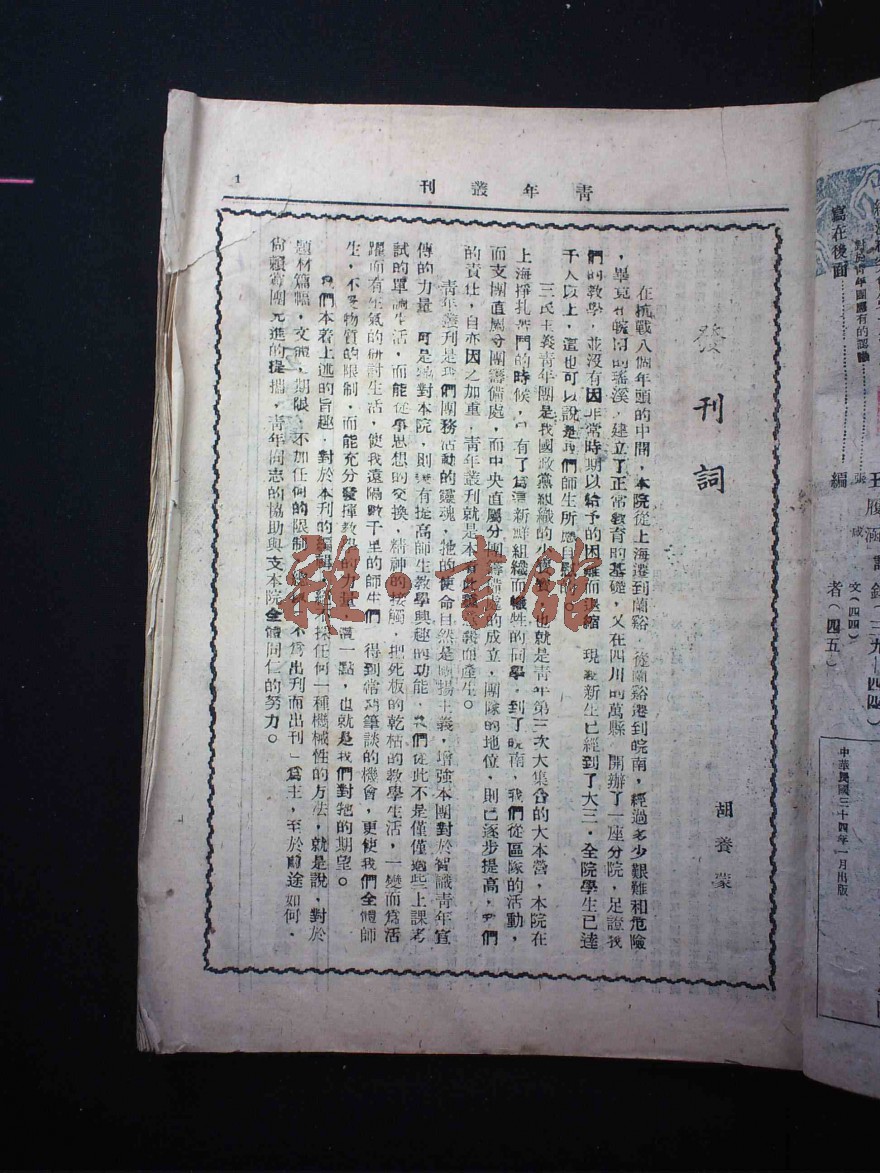 青年叢刊
1
發刊詞
胡養蒙
在抗戰八個年頭的中間，本院從上海遷到蘭谿，從蘭谿遷到皖南，經過多少艱難和危險
，畢竟在皖南的瑤溪，建立了正常教育的基礎，又在四川的萬縣，開辦了一座分院，足證我
們的教學，並沒有因非常時期以給予的困難而退縮，現在新生已經到了大三，全院學生已達
千人以上，這也可以說是我們師生所應自慰的。
三民主義青年團是我國政黨組織的少，也就是青年第三次大集合的大本營，本院在
上海掙扎奮鬥的時候，只有了為這新鮮組織而犧牲的同學，到了皖南，我們從區隊的活動，
而支團直屬分團籌備處，而中央直屬分團籌備處的成立，團隊的地位，則已逐步提高，我們
的責任，自亦因之加重，青年叢刊就是本而產生。
青年叢刊是我們團務活動的靈魂，牠的使命自然是闡揚主義，增強本團對於智識青年宣
傳的力量，可是對本院，則更有提高師生教學興趣的功能，我們從此不是僅僅過些上課考
試的單調生活，而能從事思想的交換，精神的接觸，把死板的乾枯的教學生活，一變而為活
躍而有生氣的研討生活，使我遠隔數千里的師生們，得到常筆談的機會，更使我們全體師
生，不受物質的限制，而能充分發揮教的力量，這一點，也就是我們對牠的期望。
我們本着上述的旨趣，對於本刊的編輯，不採任何一種機械性的方法，就是說，對於
題材篇幅，文，期限，不加任何的限制，不為出刊而出刊」為主，至於前途如何，
尚賴當團先進的提攜，青年同志的協助與支本院全體同仁的努力。
寫在後面
編者（四五）
文（四四）
中華民國三十四年一月出版
雜·書館